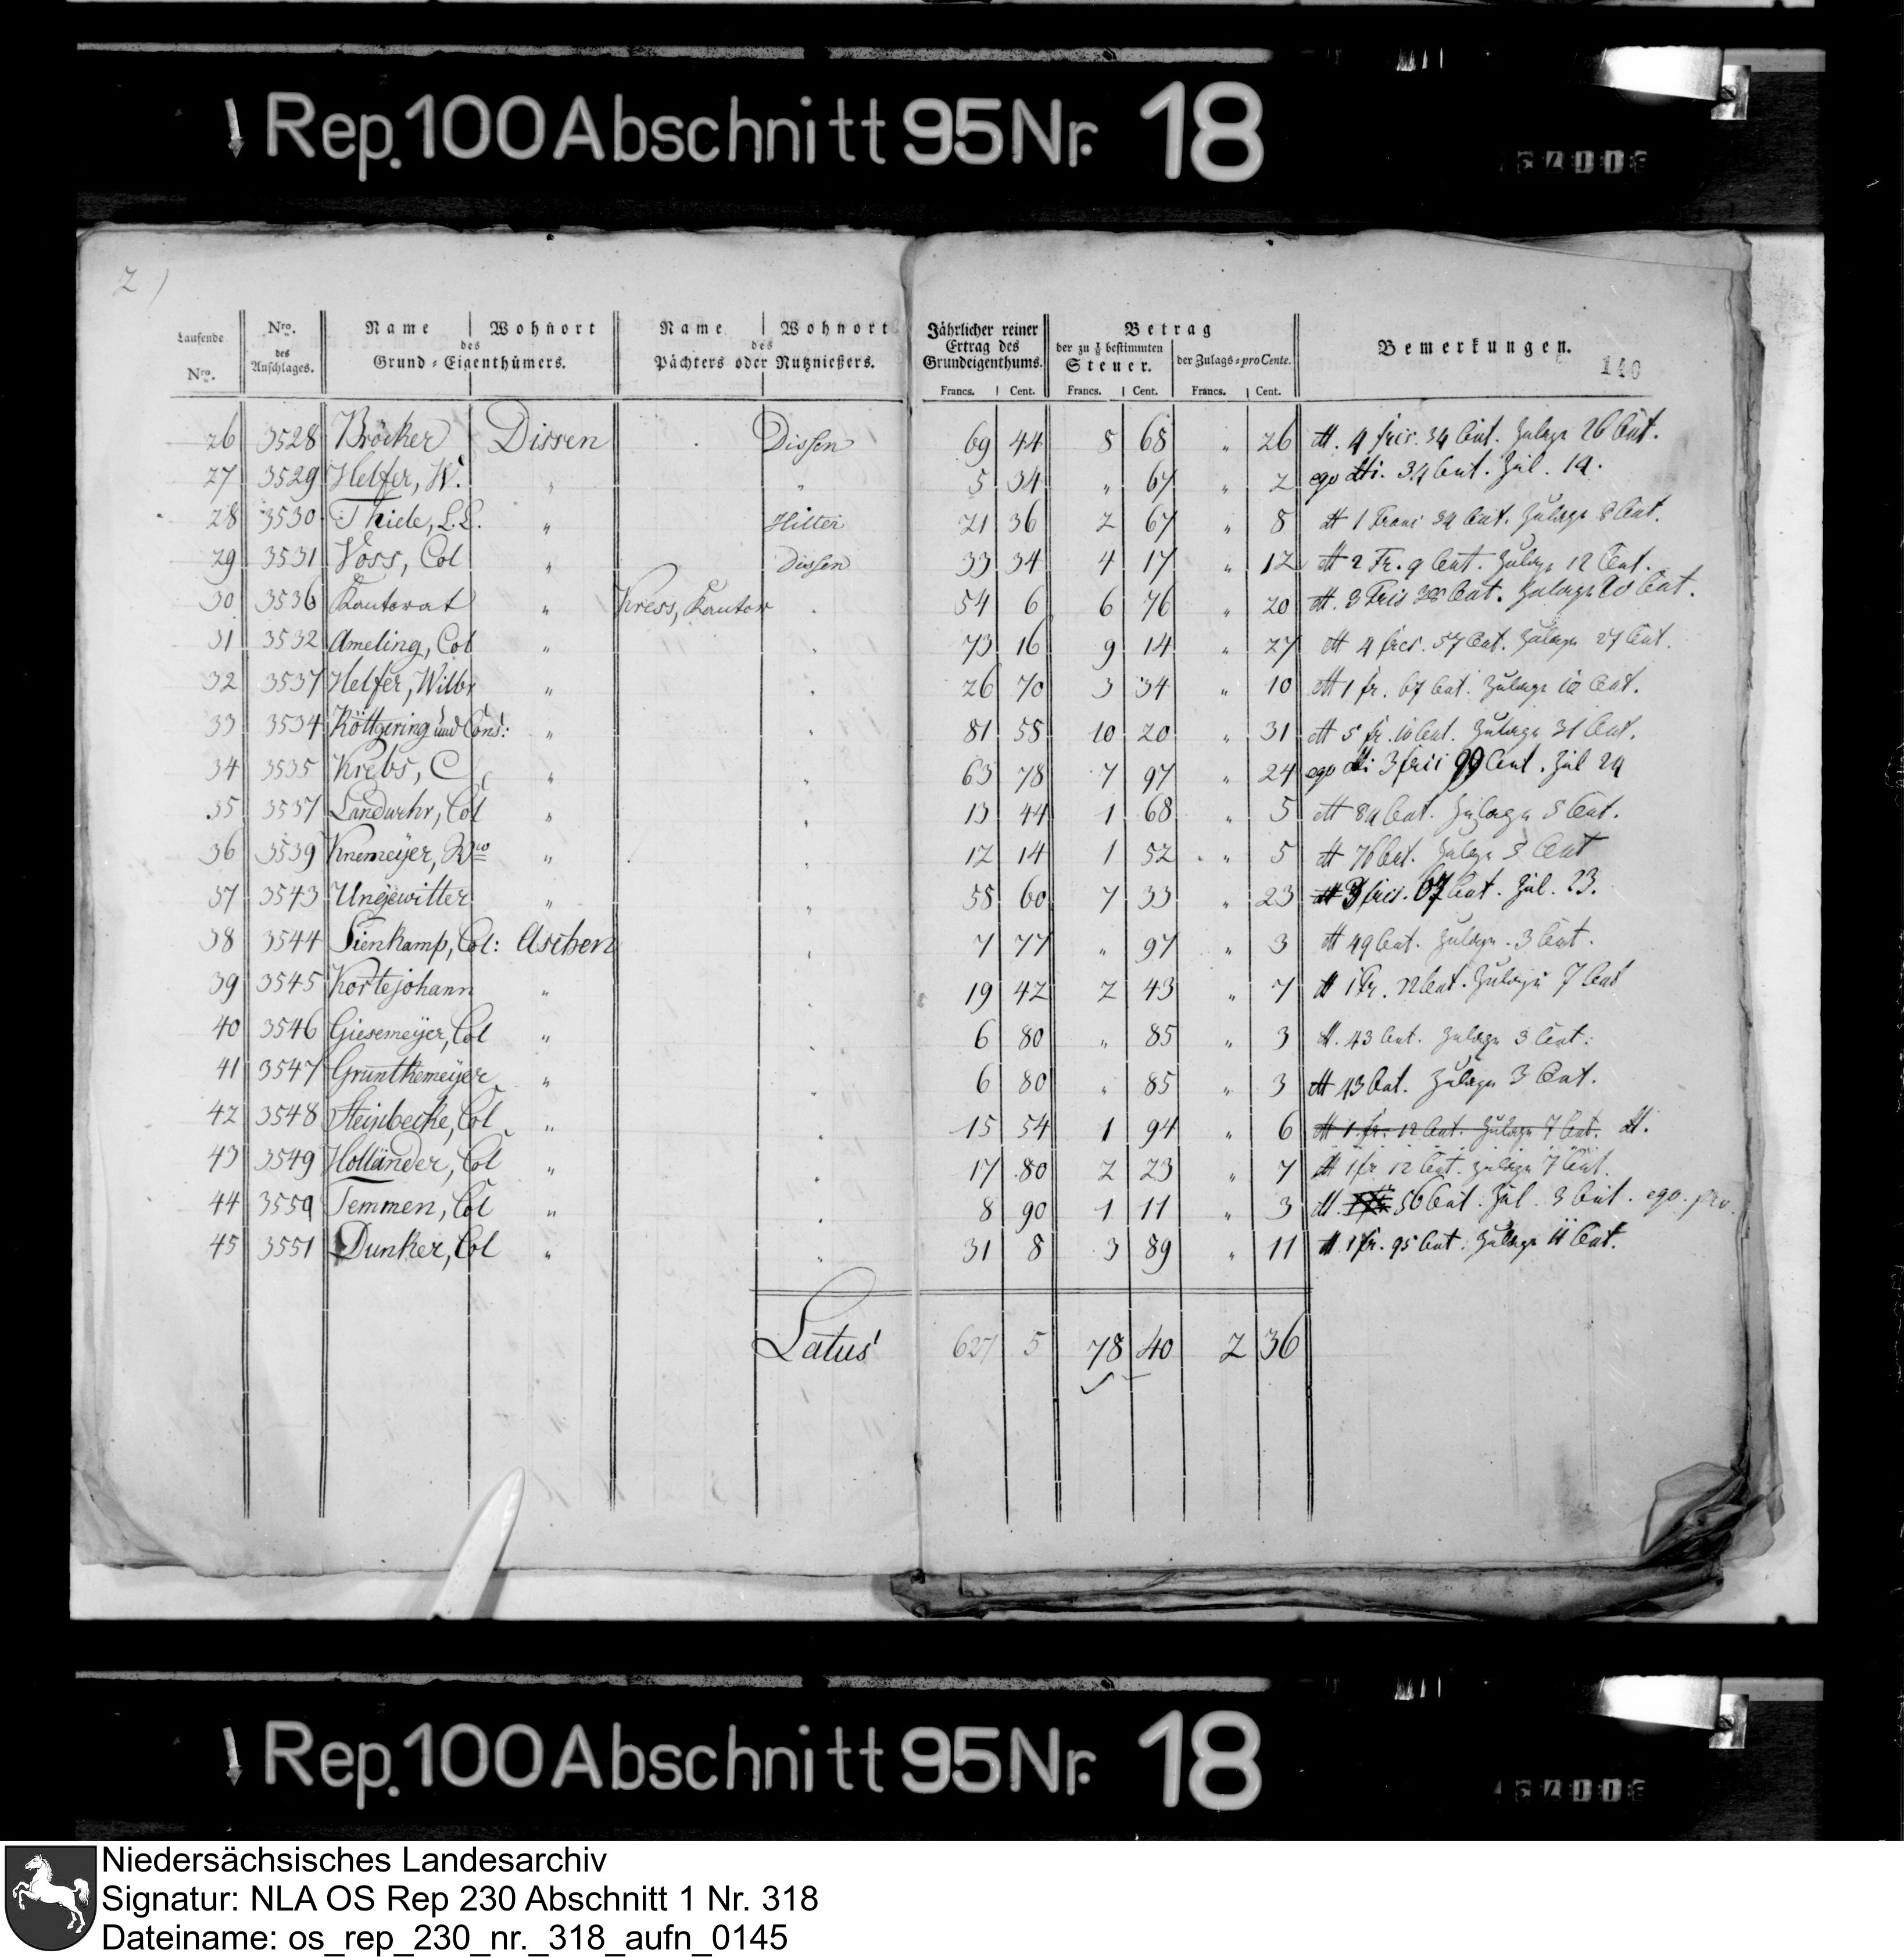 Rep. 100 Abschnitt 95 Nr. 18
2)
Laufende Nro. | Nro. des Anschlages. | Name | Wohnort des Grund-Eigenthümers. | Name | Wohnort des Pächters oder Nutznießers. | Jährlicher reiner Ertrag des Grundeigenthums. | Betrag der zu ⅛ bestimmten Steuer. | der Zulags-pro Cente. | Bemerkungen.
140
Francs. | Cent. | Francs. | Cent. | Francs. | Cent.
26 3528 Bröcker Dissen Dissen 69 44 8 68 " 26 dt. 4 frcs. 34 Cent. Zulage 26 Cent.
27 3529 Helfer, W. " " 5 34 " 67 " 2 ego dt. 34 Cent. Zul. 1a.
28 3530 Thiele, L.L. " Hilter 21 36 2 67 " 8 dt 1 Franc 34 Cent. Zulage 8 Cent.
29 3531 Voss, Col " Dissen 33 34 4 17 " 12 dt 2 Fr. 9 Cent. Zulage 12 Cent.
30 3536 Kantorat " Kress, Kantor 54 6 6 76 " 20 dt. 3 Frcs 38 Cent. Zulage 20 Cent.
31 3532 Ameling, Col " 73 16 9 14 " 27 dt 4 frcs. 57 Cent. Zulage 27 Cent.
32 3537 Helfer, Wilbr " 26 70 3 34 " 10 dt 1 fr. 67 Cent. Zulage 10 Cent.
33 3534 Röttgering und Cons: " 81 58 10 20 " 31 dt 5 fr. 10 Cent. Zulage 31 Cent.
34 3535 Krebs, C " 63 78 7 97 " 24 ego dt 3 frcs 99 Cent. Zul 24
35 3537 Landwehr, Col " 13 44 1 68 " 5 dt 84 Cent. Zulage 5 Cent.
36 3539 Knemeÿer, Wwe " 12 14 1 52 " 5 dt 76 Cent. Zulage 5 Cent
37 3543 Ungewitter " 58 60 7 33 " 23 dt 3 frcs. 67 Cent. Zul. 23.
38 3544 Sienkamp, Col: Aschen 7 77 " 97 " 3 dt 49 Cent. Zulage. 3 Cent.
39 3545 Kortejohann " 19 42 2 43 " 7 dt 1 Fr. 22 Cent. Zulage 7 Cent
40 3546 Giesemeÿer, Col " 6 80 " 85 " 3 dt. 43 Cent. Zulage 3 Cent.
41 3547 Grunthemeÿer " 6 80 " 85 " 3 dt 43 Cent. Zulage 3 Cent.
42 3548 Steinbecke, Col " 15 54 1 94 " 6 dt 1 fr. 12 Cent. Zulage 7 Cent. dt.
43 3549 Holländer, Col " 17 80 2 23 " 7 dt 1 fr 12 Cent. Zulage 7 Cent.
44 3550 Temmen, Col " 8 90 1 11 " 3 dt. 56 Cent. Zul. 3 Cent. ego.
45 3551 Dunker, Col " 31 8 3 89 " 11 dt 1 fr. 95 Cent. Zulage 11 Cent.
Latus 627 5 78 40 2 36
Rep. 100 Abschnitt 95 Nr. 18
Niedersächsisches Landesarchiv
Signatur: NLA OS Rep 230 Abschnitt 1 Nr. 318
Dateiname: os_rep_230_nr._318_aufn_0145